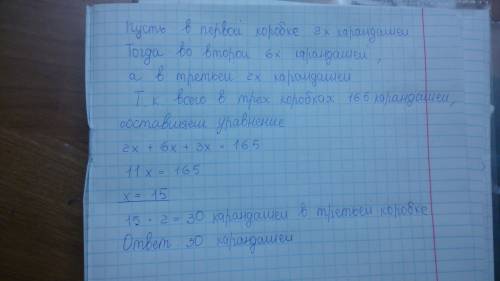 Пусть в первой коробке 2x карандашей
Тогда во второй 6x карандашей,
а в третьей 2x карандашей
Т к всего в трех коробках 165 карандашей,
составляем уравнение
2x + 6x + 3x = 165
11x = 165
x = 15
15 · 2 = 30 карандашей в третьей коробке
Ответ 30 карандашей